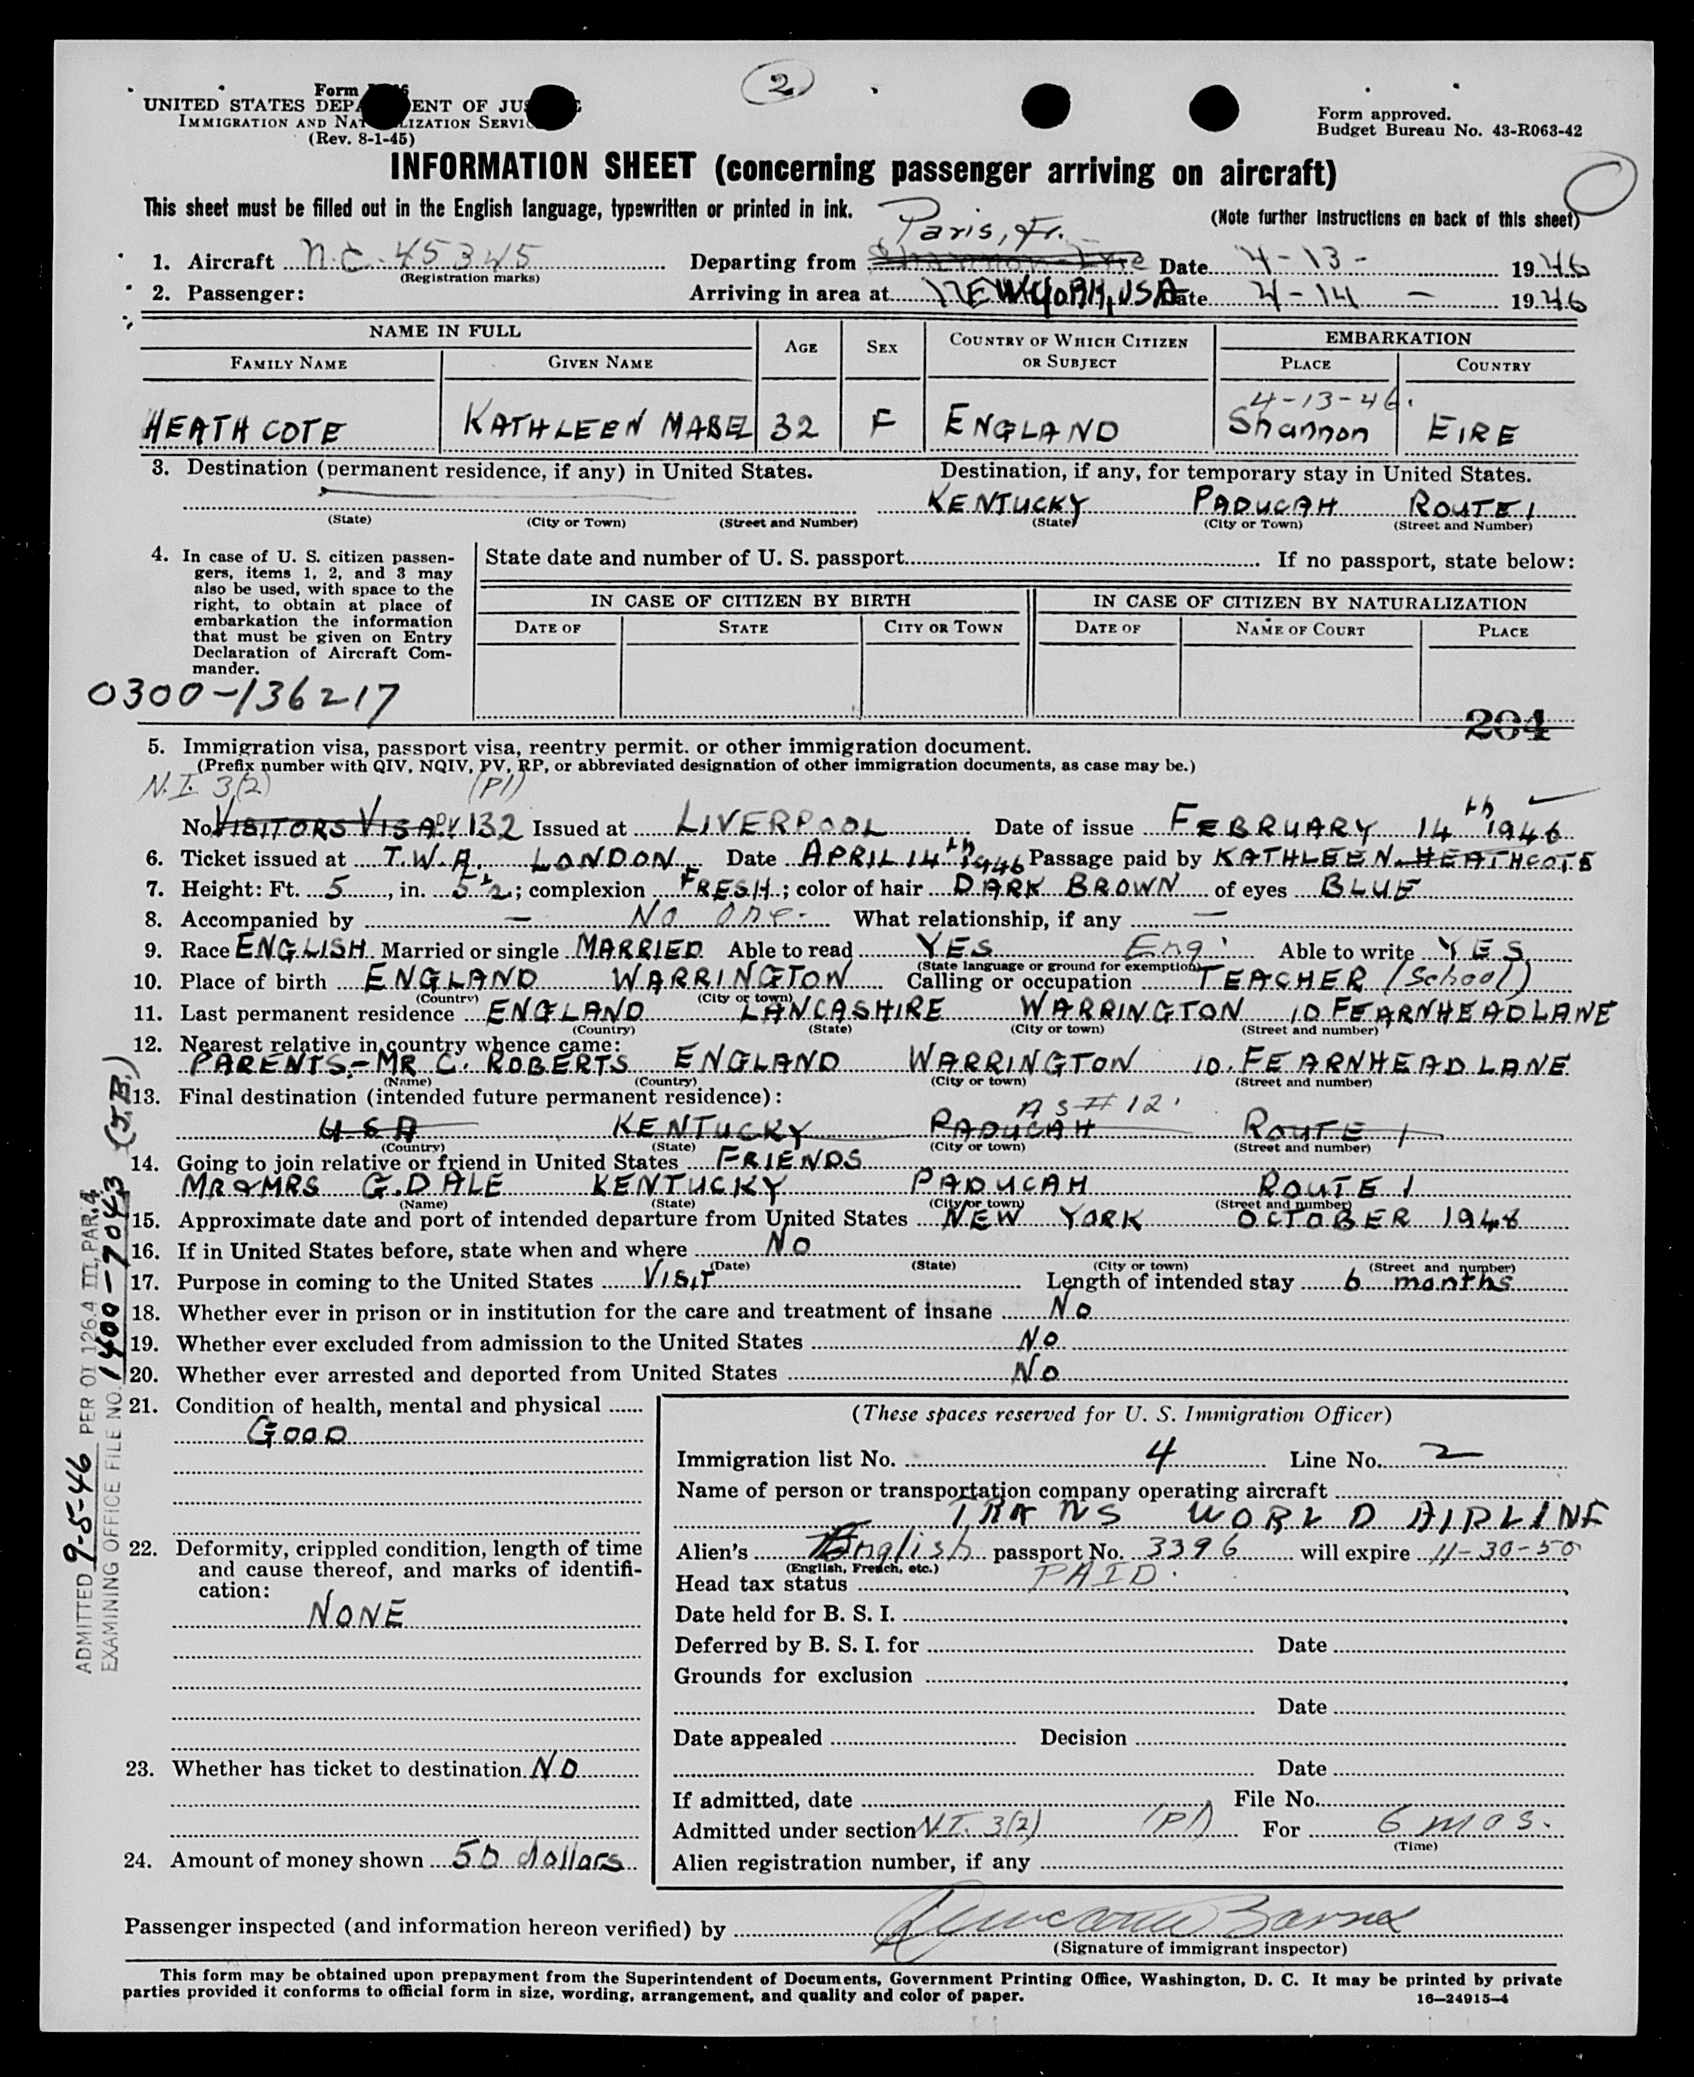 2
Form
UNITED STATES DEPA ENT OF JUS
IMMIGRATION AND NAT LIZATION SERVI
(Rev. 8-1-45)
Form approved.
Budget Bureau No. 43-R063-42
INFORMATION SHEET (concerning passenger arriving on aircraft)
This sheet must be filled out in the English language, typewritten or printed in ink.
(Note further instructions on back of this sheet)
Paris, Fr.
1. Aircraft N.C. 45345 Departing from Date 4-13- 1946
(Registration marks)
2. Passenger: Arriving in area at NEW YORK, USA Date 4-14- 1946
NAME IN FULL AGE SEX COUNTRY OF WHICH CITIZEN OR SUBJECT EMBARKATION
FAMILY NAME GIVEN NAME PLACE COUNTRY
4-13-46.
HEATHCOTE KATHLEEN MABEL 32 F ENGLAND Shannon EIRE
3. Destination (permanent residence, if any) in United States. Destination, if any, for temporary stay in United States.
KENTUCKY PADUCAH ROUTE 1
(State) (City or Town) (Street and Number) (State) (City or Town) (Street and Number)
4. In case of U. S. citizen passen-
gers, items 1, 2, and 3 may
also be used, with space to the
right, to obtain at place of
embarkation the information
that must be given on Entry
Declaration of Aircraft Com-
mander.
0300-136217
State date and number of U. S. passport If no passport, state below:
IN CASE OF CITIZEN BY BIRTH IN CASE OF CITIZEN BY NATURALIZATION
DATE OF STATE CITY OR TOWN DATE OF NAME OF COURT PLACE
264
5. Immigration visa, passport visa, reentry permit, or other immigration document.
(Prefix number with QIV, NQIV, PV, RP, or abbreviated designation of other immigration documents, as case may be.)
N.I. 3(2) (P1)
No. VISITORS VISA PV 132 Issued at LIVERPOOL Date of issue FEBRUARY 14th 1946
6. Ticket issued at T.W.A. LONDON Date APRIL 14th 1946 Passage paid by KATHLEEN HEATHCOTE
7. Height: Ft. 5, in. 5½; complexion FRESH; color of hair DARK BROWN of eyes BLUE
8. Accompanied by — No One- What relationship, if any —
9. Race ENGLISH Married or single MARRIED Able to read YES Eng. Able to write YES
(State language or ground for exemption)
10. Place of birth ENGLAND WARRINGTON Calling or occupation TEACHER (School)
(Country) (City or town)
11. Last permanent residence ENGLAND LANCASHIRE WARRINGTON 10 FEARNHEAD LANE
(Country) (State) (City or town) (Street and number)
12. Nearest relative in country whence came:
PARENTS.- MR C. ROBERTS ENGLAND WARRINGTON 10. FEARNHEAD LANE
(Name) (Country) (City or town) (Street and number)
13. Final destination (intended future permanent residence):
AS # 12.
USA KENTUCKY PADUCAH ROUTE 1
(Country) (State) (City or town) (Street and number)
14. Going to join relative or friend in United States FRIENDS
MR & MRS G. DALE KENTUCKY PADUCAH ROUTE 1
(Name) (State) (City or town) (Street and number)
15. Approximate date and port of intended departure from United States NEW YORK OCTOBER 1946
16. If in United States before, state when and where NO
(Date) (State) (City or town) (Street and number)
17. Purpose in coming to the United States VISIT Length of intended stay 6 months
18. Whether ever in prison or in institution for the care and treatment of insane No
19. Whether ever excluded from admission to the United States No
20. Whether ever arrested and deported from United States No
21. Condition of health, mental and physical
GOOD
22. Deformity, crippled condition, length of time
and cause thereof, and marks of identifi-
cation:
NONE
23. Whether has ticket to destination NO
24. Amount of money shown 50 dollars
(These spaces reserved for U. S. Immigration Officer)
Immigration list No. 4 Line No. 2
Name of person or transportation company operating aircraft
TRANS WORLD AIRLINE
Alien's English passport No. 3396 will expire 11-30-50
(English, French, etc.)
Head tax status PAID.
Date held for B. S. I.
Deferred by B. S. I. for Date
Grounds for exclusion
Date
Date appealed Decision
Date
If admitted, date File No.
Admitted under section N.I. 3(2) (P1) For 6 mos.
(Time)
Alien registration number, if any
Passenger inspected (and information hereon verified) by
(Signature of immigrant inspector)
This form may be obtained upon prepayment from the Superintendent of Documents, Government Printing Office, Washington, D. C. It may be printed by private
parties provided it conforms to official form in size, wording, arrangement, and quality and color of paper.
16—24915-4
ADMITTED 9-5-46 PER OI 126.4 III, PAR. 4
EXAMINING OFFICE FILE NO. 1400-7043 (J.B.)